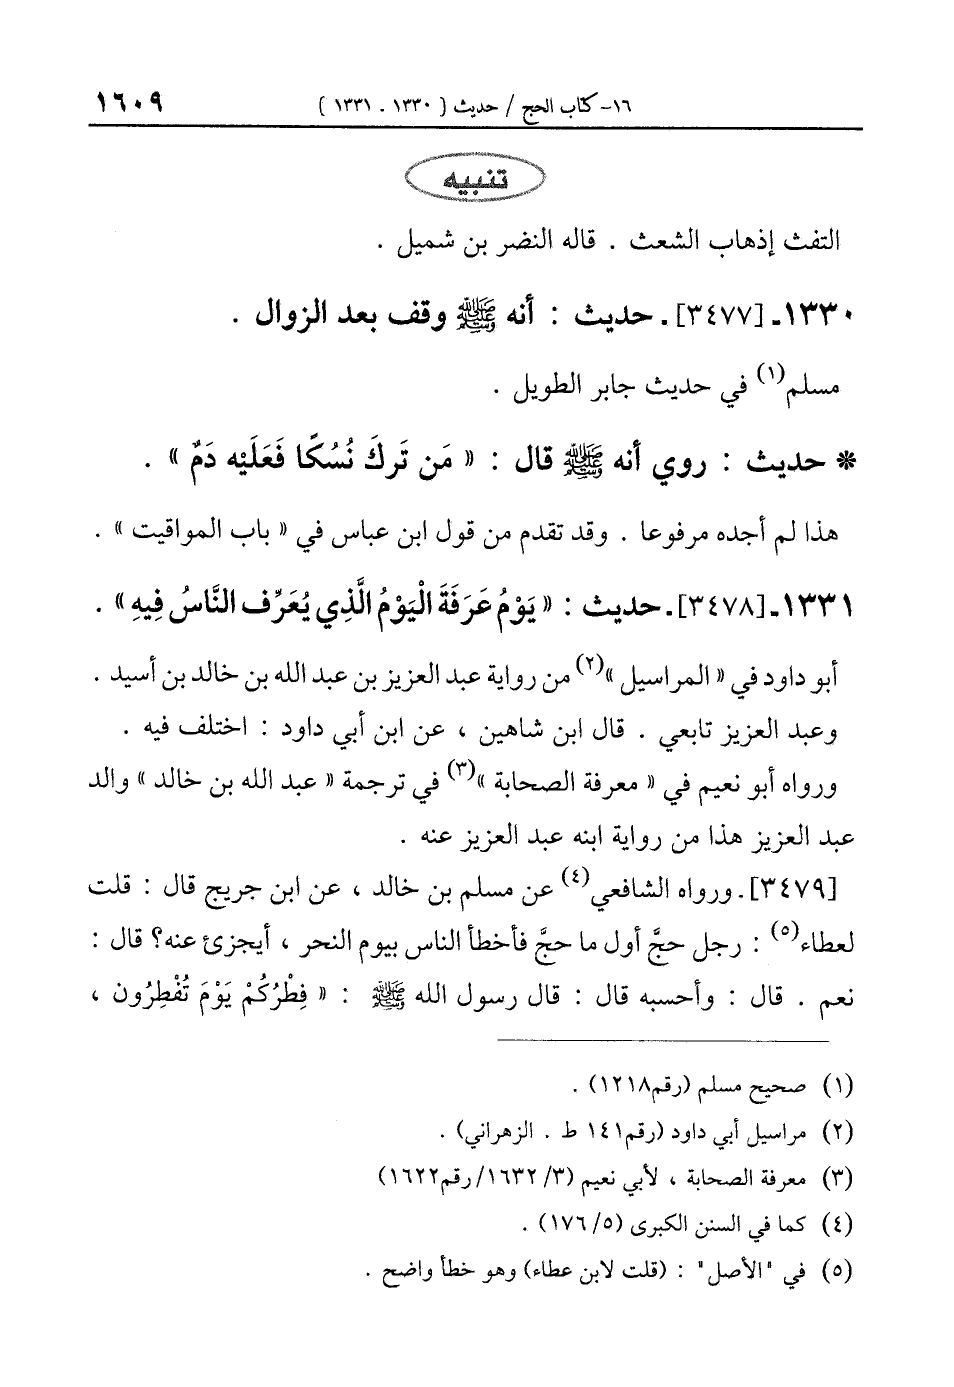 ١٦- كتاب الحج / حديث ( ١٣٣٠ . ١٣٣١ ) ١٦٠٩
تنبيه
التفث إذهاب الشعث . قاله النضر بن شميل .
١٣٣٠ـ [٣٤٧٧]. حديث : أنه ﷺ وقف بعد الزوال .
مسلم(١) في حديث جابر الطويل .
* حديث : روي أنه ﷺ قال : « مَن تَركَ نُسُكًا فَعَلَيْه دَمٌ » .
هذا لم أجده مرفوعا . وقد تقدم من قول ابن عباس في « باب المواقيت » .
١٣٣١ـ [٣٤٧٨]. حديث : « يَوْمُ عَرَفَةَ الْيَوْمُ الَّذِي يُعَرِّف النَّاسُ فِيهِ » .
أبو داود في « المراسيل »(٢) من رواية عبد العزيز بن عبد الله بن خالد بن أسيد .
وعبد العزيز تابعي . قال ابن شاهين ، عن ابن أبي داود : اختلف فيه .
ورواه أبو نعيم في « معرفة الصحابة »(٣) في ترجمة « عبد الله بن خالد » والد
عبد العزيز هذا من رواية ابنه عبد العزيز عنه .
[٣٤٧٩]. ورواه الشافعي(٤) عن مسلم بن خالد ، عن ابن جريج قال : قلت
لعطاء(٥) : رجل حجَّ أول ما حجَّ فأخطأ الناس بيوم النحر ، أيجزئ عنه؟ قال :
نعم . قال : وأحسبه قال : قال رسول الله ﷺ : « فِطْرُكُمْ يَوْمَ تُفْطِرُون ،
(١) صحيح مسلم (رقم١٢١٨) .
(٢) مراسيل أبي داود (رقم١٤١ ط . الزهراني) .
(٣) معرفة الصحابة ، لأبي نعيم (٣/ ١٦٣٢/ رقم١٦٢٢)
(٤) كما في السنن الكبرى (٥/ ١٧٦) .
(٥) في "الأصل" : (قلت لابن عطاء) وهو خطأ واضح .